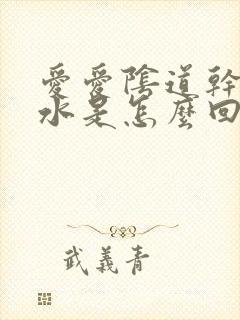 愛愛陰道幹
水是怎麼回
武義青